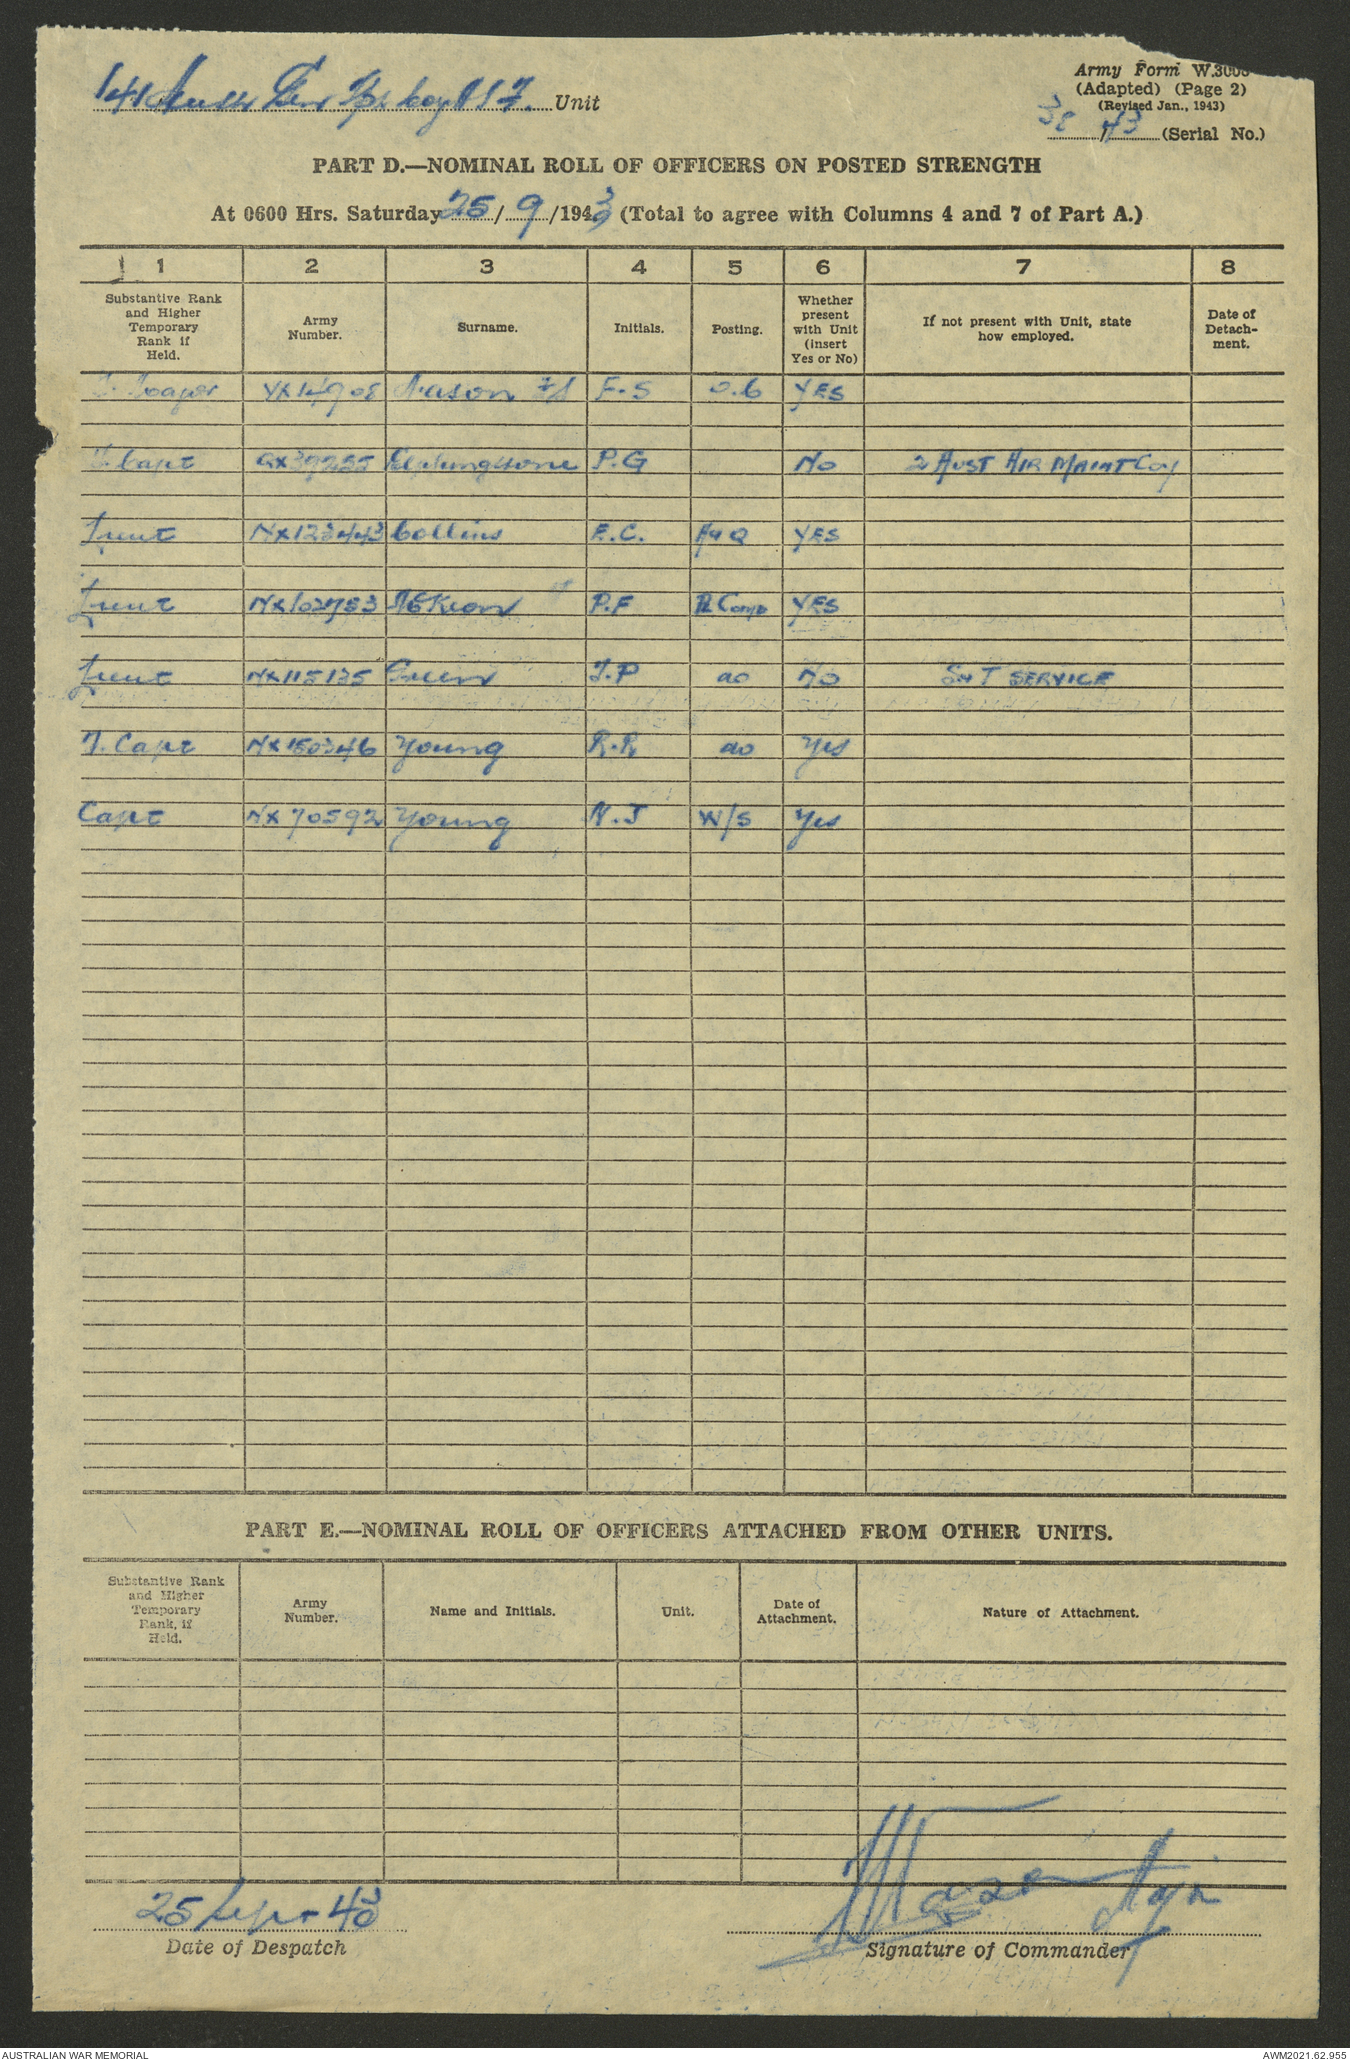 141 Aust Gen Tpt Coy AIF. Unit
Army Form W.3008
(Adapted) (Page 2)
(Revised Jan., 1943)
38 / 43 (Serial No.)
PART D.—NOMINAL ROLL OF OFFICERS ON POSTED STRENGTH
At 0600 Hrs. Saturday 25 / 9 /1943 (Total to agree with Columns 4 and 7 of Part A.)
1 2 3 4 5 6 7 8
Substantive Rank and Higher Temporary Rank if Held. Army Number. Surname. Initials. Posting. Whether present with Unit (insert Yes or No) If not present with Unit, state how employed. Date of Detachment.
T. Major VX14908 Mason F.S O.C YES
T. Capt QX39255 P.G No 2 AUST AIR MAINT COY
Lieut NX123443 Collins E.C. HQ YES
Lieut NX102753 McKeon P.F YES
Lieut NX115135 Green J.P do No S & T SERVICE
T. Capt NX150346 Young R.R do Yes
Capt NX70592 Young N.J W/S Yes
PART E.—NOMINAL ROLL OF OFFICERS ATTACHED FROM OTHER UNITS.
Substantive Rank and Higher Temporary Rank, if Held. Army Number. Name and Initials. Unit. Date of Attachment. Nature of Attachment.
25 Sept 43 Mason Major
Date of Despatch Signature of Commander
AUSTRALIAN WAR MEMORIAL AWM2021.62.955